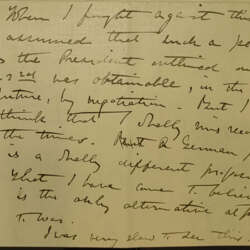 When I fought against the
assumed that such a pe
as the President outlined on
was obtainable, in the
future, by negotiation. But I
think that I
the times. A German
is a wholly different propos
that I have come to believe
is the only alternative of
war.
I was very slow to see this